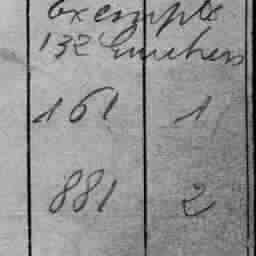 Exemple
132
161 1
881 2